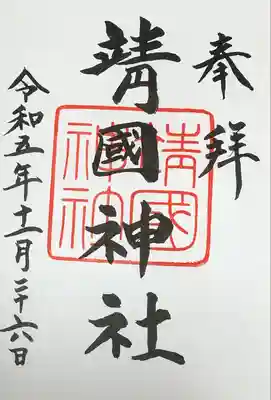 奉拝
靖國神社
靖國神社
令和五年十一月二十六日